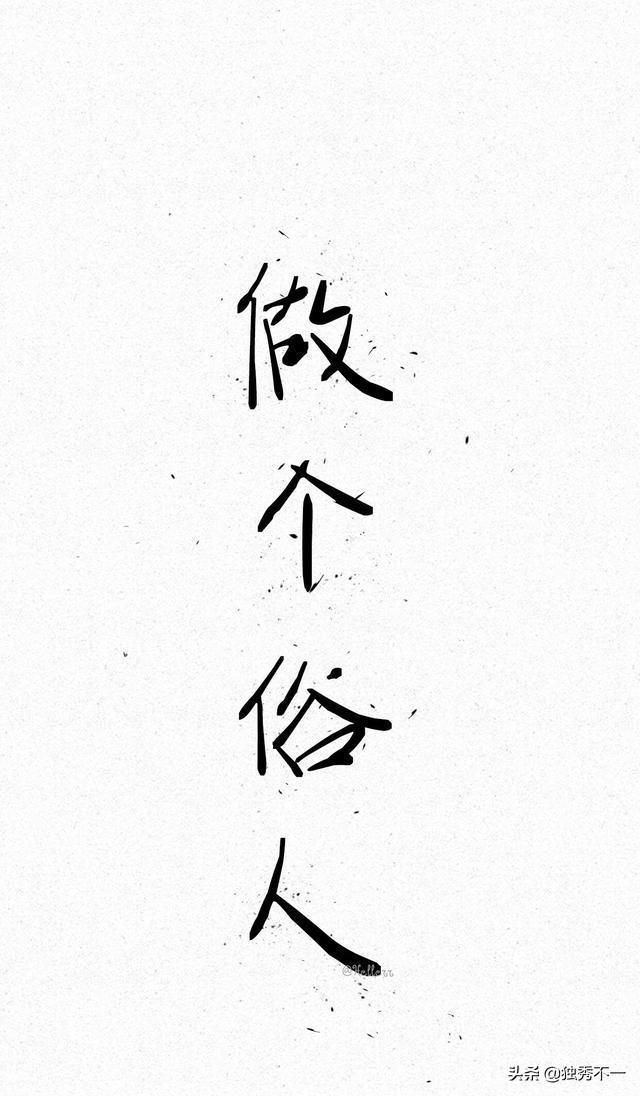 做个俗人
头条 @独秀不一